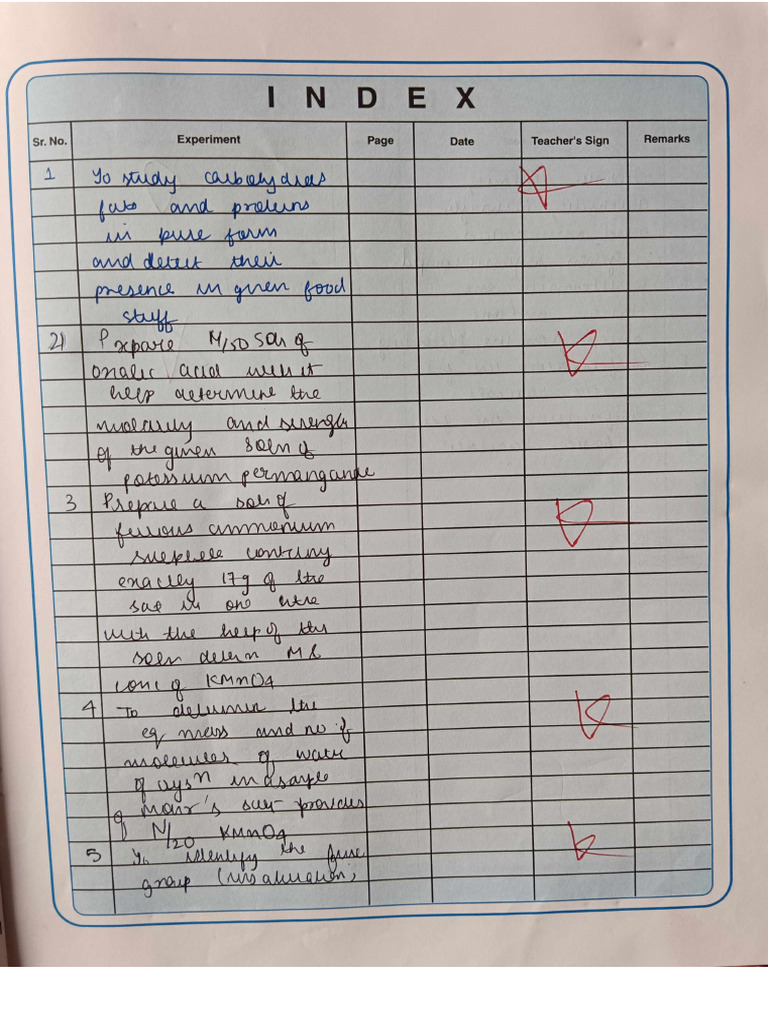 INDEX
Sr. No. Experiment Page Date Teacher's Sign Remarks
1 To study carbohydrates
fats and proteins
in pure form
and detect their
presence in given food
stuff
2) Prepare M/50 soln of
oxalic acid with it
help determine the
molarity and strength
of the given soln of
potassium permanganate
3 Prepare a soln of
ferrous ammonium
sulphate containing
exactly 17g of the
salt in one litre
with the help of this
soln determ M &
conc of KMnO4
4 To determin the
eq mass and no of
molecules of water
of crysn in a sample
of Mohr's salt provides
N/20 KMnO4
5 To identify the func
group (unsaturation,